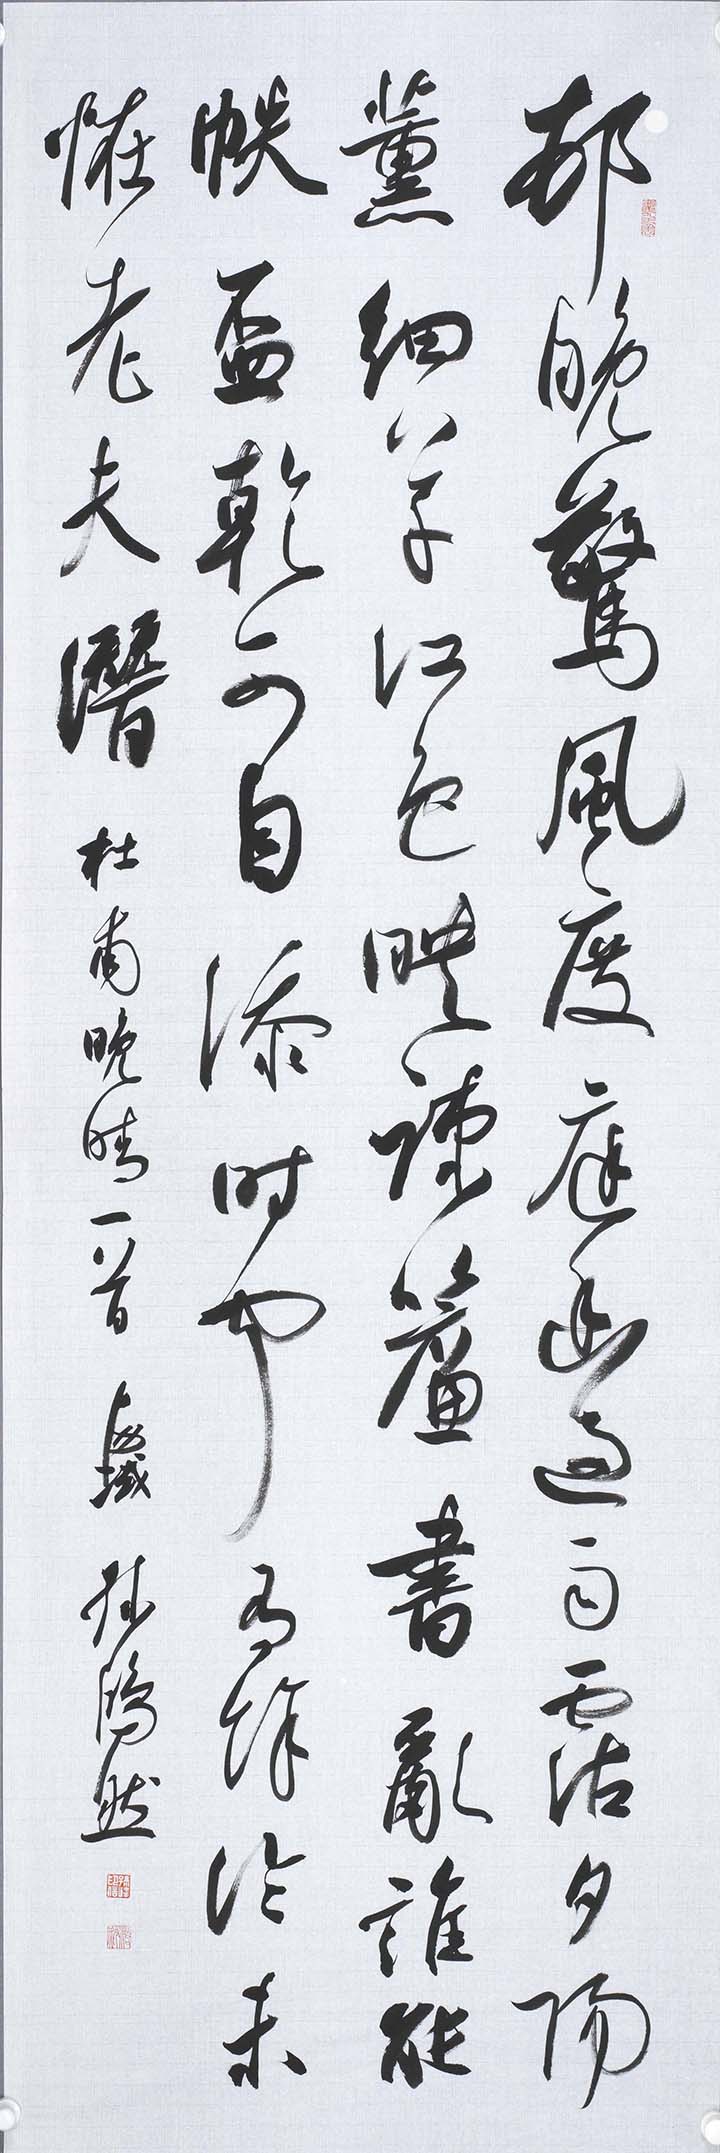 邨晚驚風度庭幽過雨霑夕陽
薰細草江色映疎簾書亂誰能
帙盃乾可自添时聞有餘論未
恠老夫潛 杜甫晚晴一首